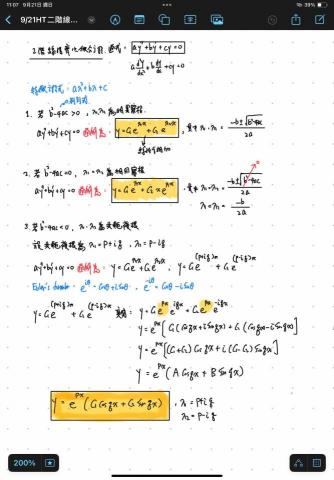 11:07 9月21日 週日
39%
9/21HT二階線...
2.階線性齊次微分方程. 型式= ay''+by'+cy=0
a d²y/dx² + b dy/dx + cy=0
特徵方程式= aλ²+bλ+c
判別式
1. 若 b²-4ac>0, λ₁,λ₂為相異實根
ay''+by'+cy=0 的解為: y=C₁e^{λ₁x}+C₂e^{λ₂x}, 其中 λ₁,λ₂= (-b±√(b²-4ac))/2a
2. 若 b²-4ac=0, λ₁=λ₂ 為相同實根
ay''+by'+cy=0 的解為: y=C₁e^{λx}+C₂xe^{λx}, 其中 λ₁=λ₂= (-b±√(b²-4ac))/2a
0
λ₁=λ₂= -b/2a
3. 若 b²-4ac<0, λ₁,λ₂為共軛複根
設共軛複根為 λ₁=p+iq, λ₂=p-iq
ay''+by'+cy=0 的解為: y=C₁e^{λ₁x}+C₂e^{λ₂x}, y=C₁e^{(p+iq)x}+C₂e^{(p-iq)x}
Euler's e^{iθ}=cosθ+isinθ, e^{-iθ}=cosθ-isinθ
y=C₁e^{(p+iq)x}+C₂e^{(p-iq)x} y=C₁e^{px}e^{iqx}+C₂e^{px}e^{-iqx}
y=e^{px}[C₁(cosqx+isinqx)+C₂(cosqx-isinqx)]
y=e^{px}[(C₁+C₂)cosqx+i(C₁-C₂)sinqx]
y=e^{px}(Acosqx+Bsinqx)
y=e^{px}(C₁cosqx+C₂sinqx), λ₁=p+iq
λ₂=p-iq
200%